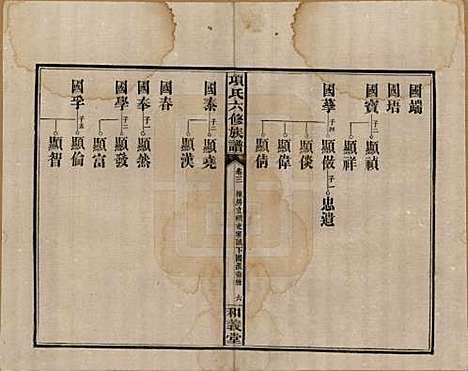 國端
國培
國寶 子二 顯禎
顯祥
國華 子四 顯倣 子一 忠遺
顯倓
顯偉
顯倩
項氏六修族譜
卷三
六
和義堂
國泰 子二 顯堯
顯漢
國春
國奉 子一 顯然
國學 子二 顯發
顯富
國孚 子五 顯倫
顯智